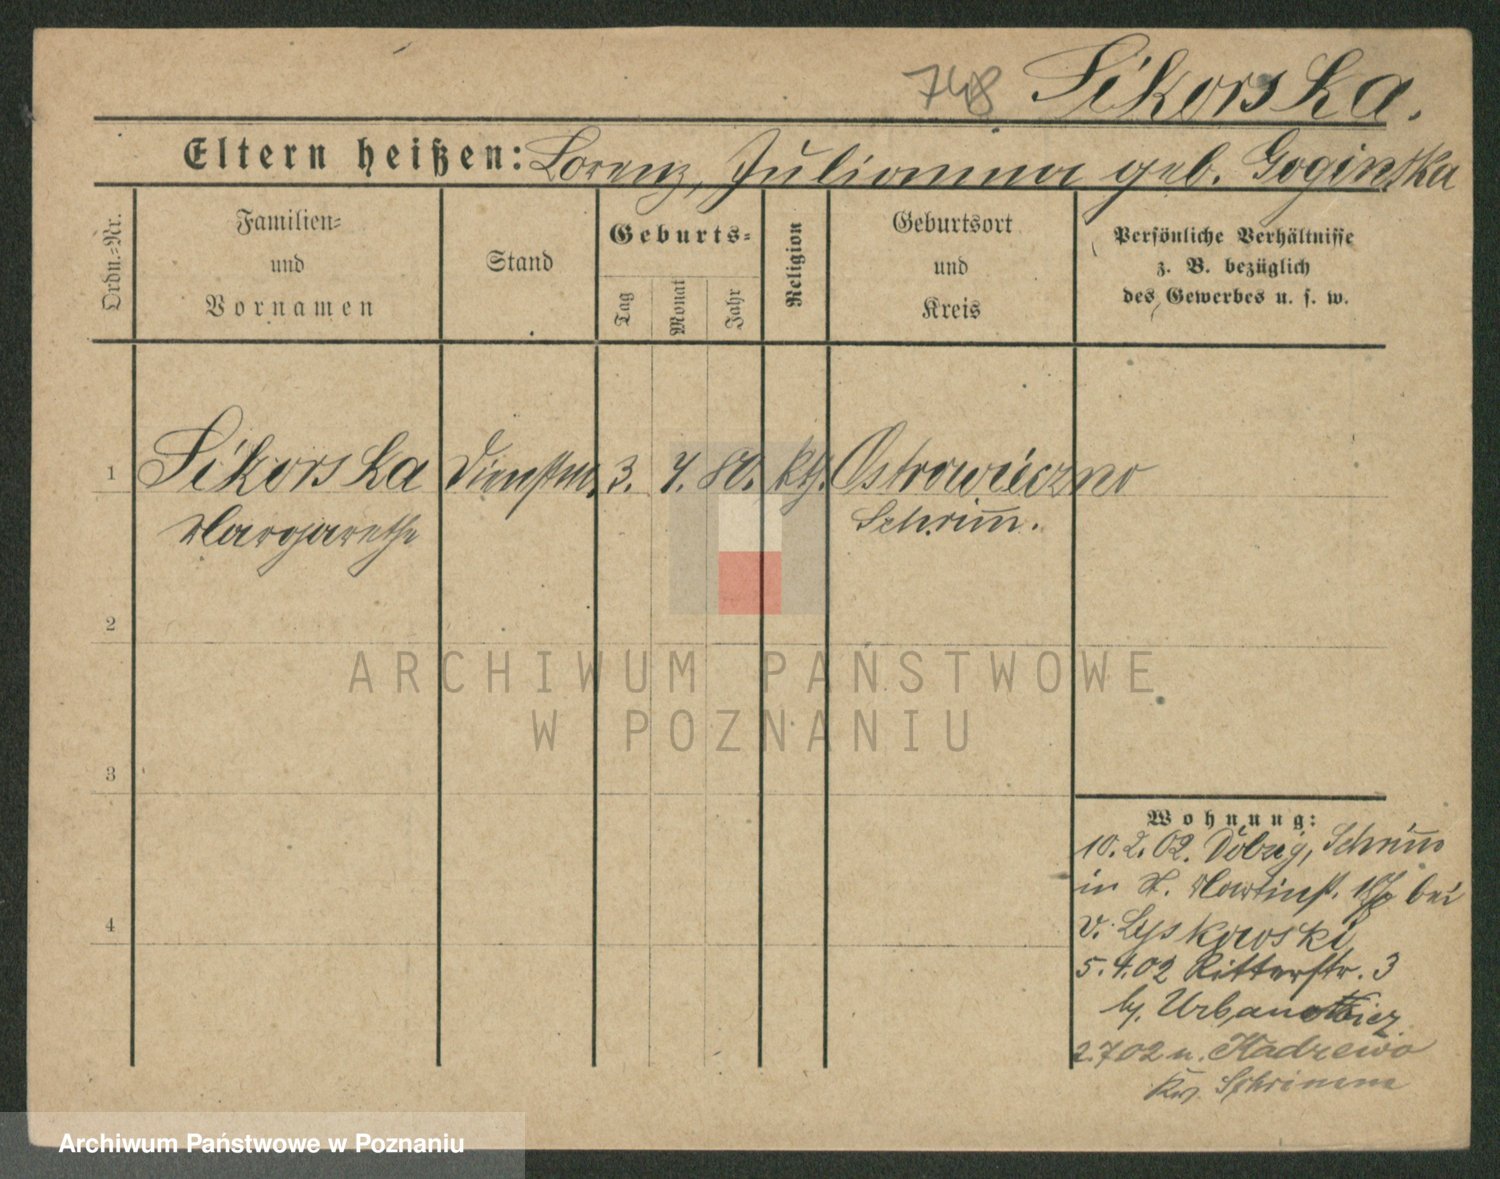 748 Sikorska.
Eltern heißen: Lorenz, Julianna geb. Goginska
Ordn.-Nr.
Familien-
und
Vornamen
Stand
Geburts-
Tag
Monat
Jahr
Religion
Geburtsort
und
Kreis
Persönliche Verhältnisse
z. B. bezüglich
des Gewerbes u. s. w.
1 Sikorska Dienstm. 3. 7. 80. kth. Ostrowieczno
Margarethe Schrim.
2
ARCHIWUM PAŃSTWOWE
W POZNANIU
3
Wohnung:
10.2.02. Schrim
in St. Martinst. bei
v. Lyskowski
5.4.02 Ritterstr. 3
b. Urbanowicz
2.7 02 n. Kadzewo
Kr. Schrimm
4
Archiwum Państwowe w Poznaniu